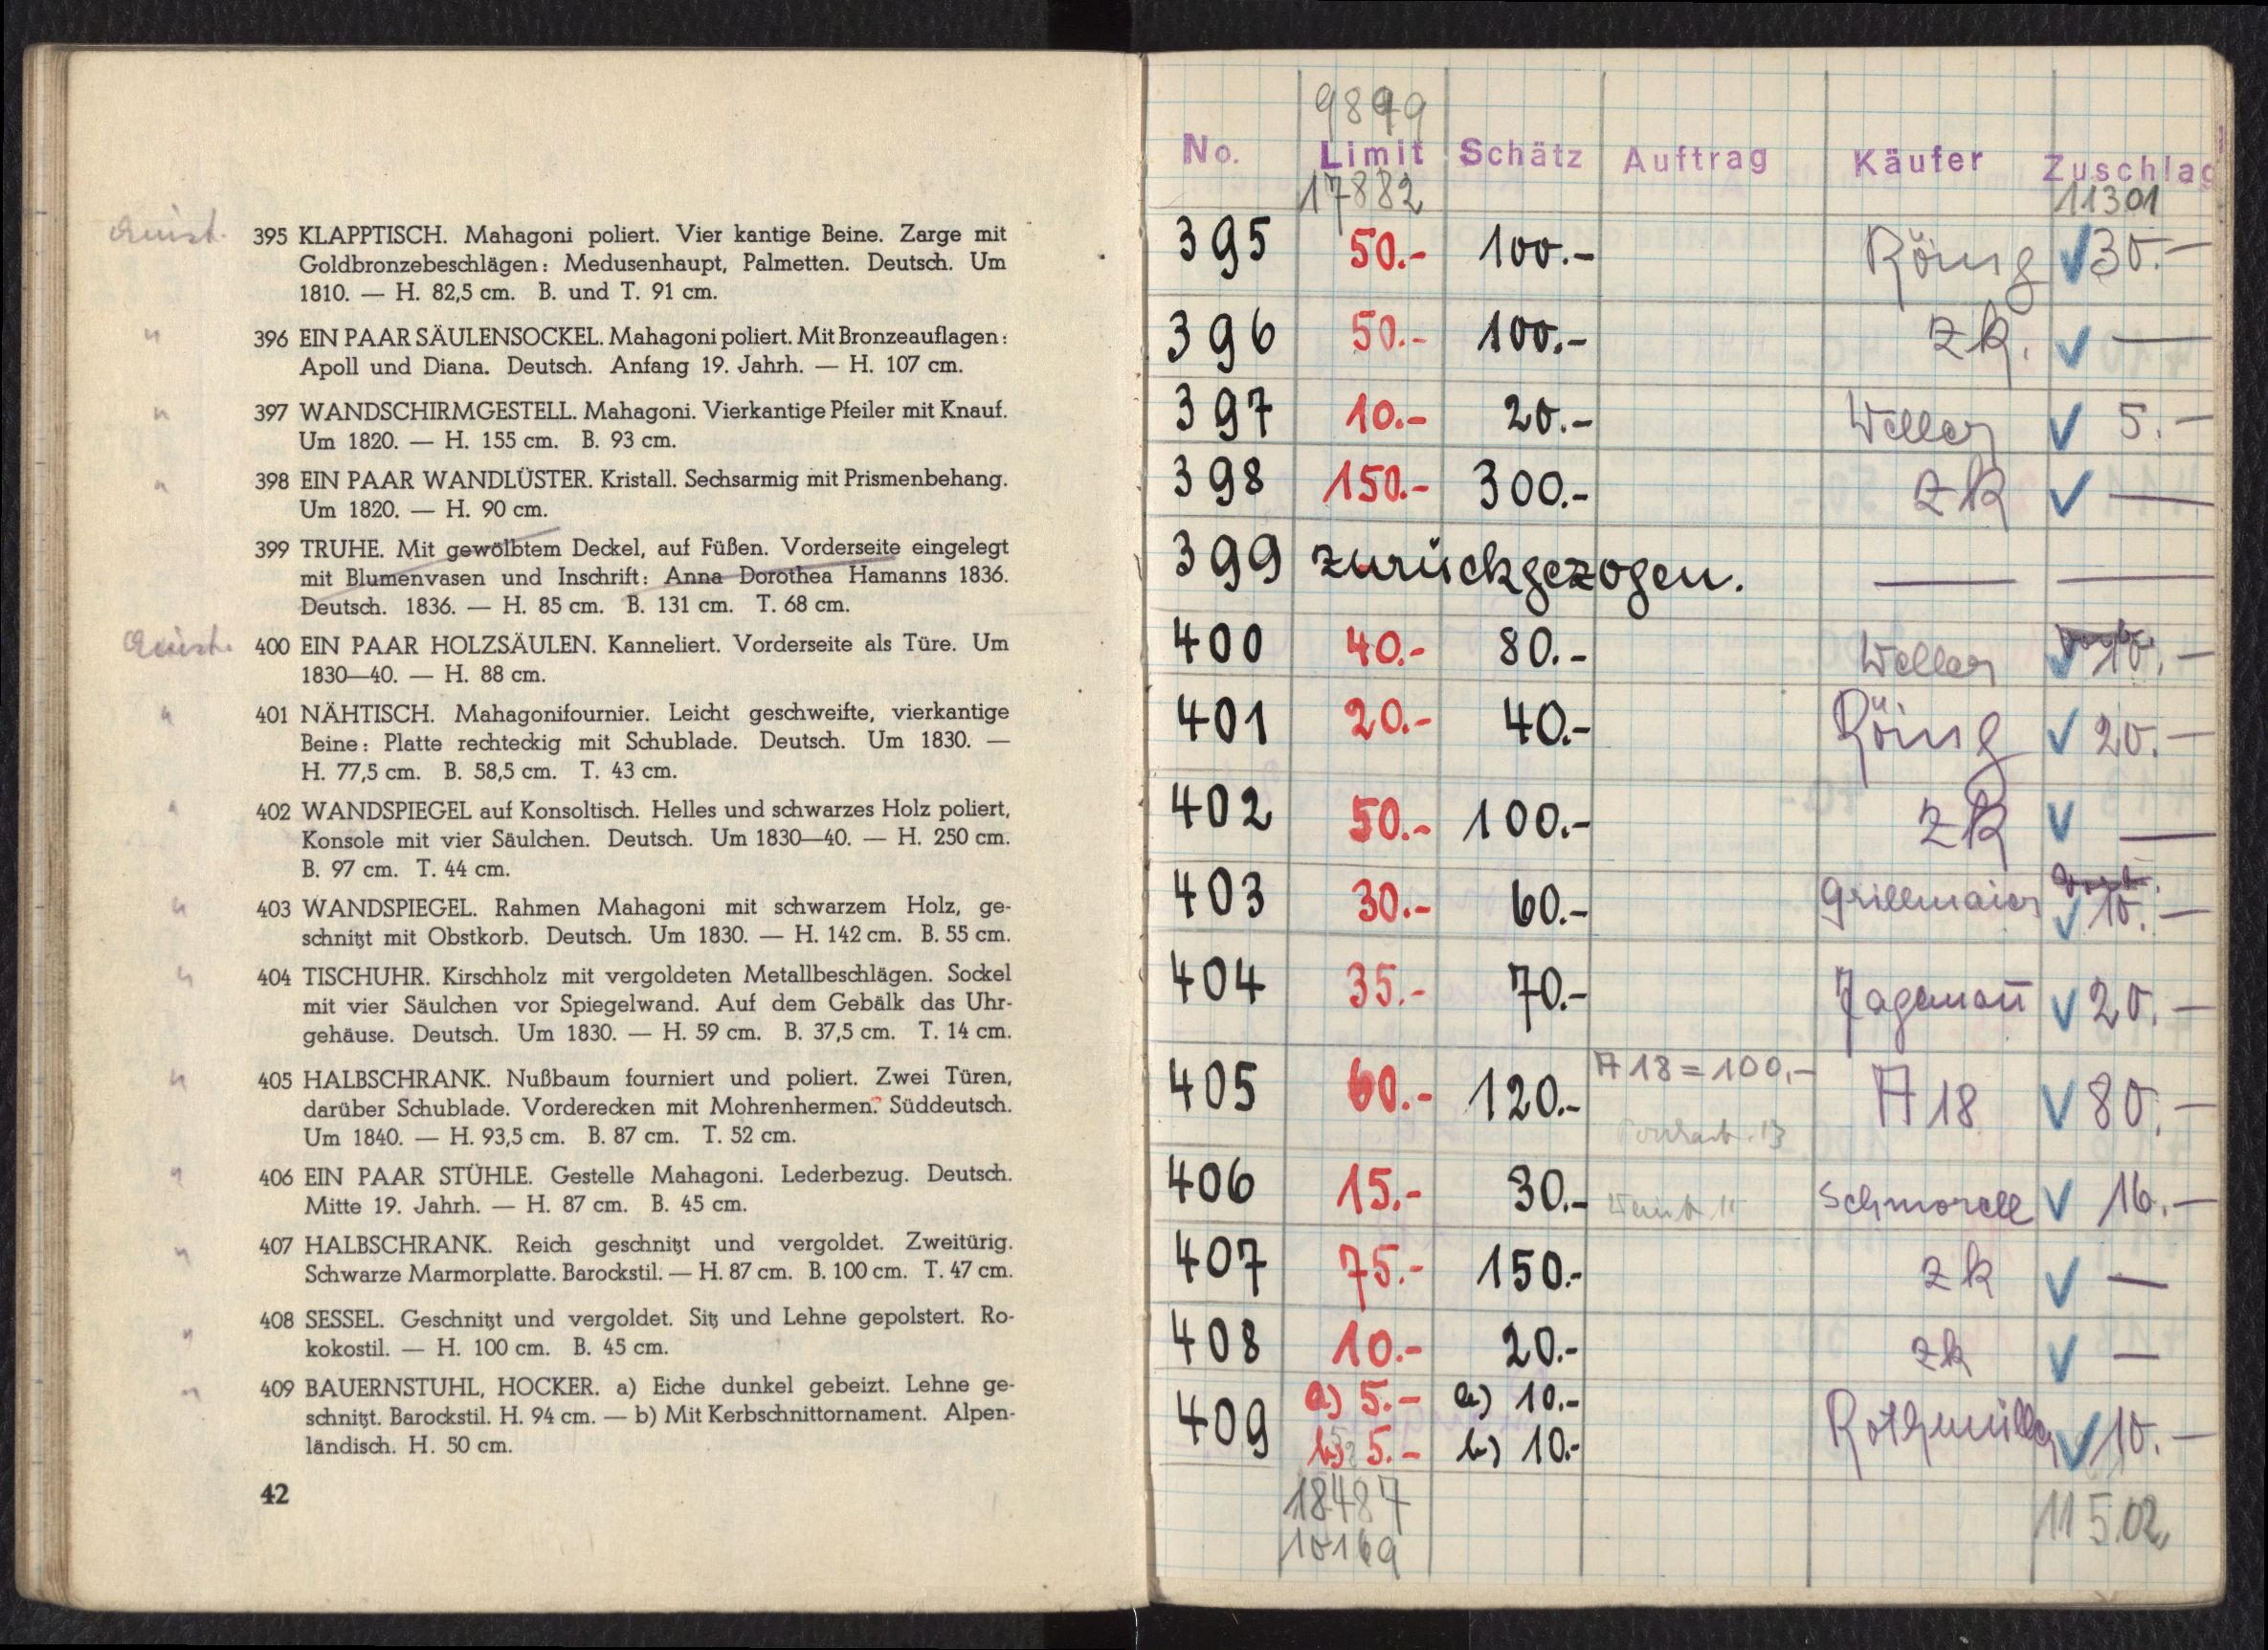 395 KLAPPTISCH. Mahagoni poliert. Vier kantige Beine. Zarge mit
Goldbronzebeschlägen: Medusenhaupt, Palmetten. Deutsch. Um
1810. — H. 82,5 cm. B. und T. 91 cm.
396 EIN PAAR SÄULENSOCKEL. Mahagoni poliert. Mit Bronzeauflagen:
Apoll und Diana. Deutsch. Anfang 19. Jahrh. — H. 107 cm.
397 WANDSCHIRMGESTELL. Mahagoni. Vierkantige Pfeiler mit Knauf.
Um 1820. — H. 155 cm. B. 93 cm.
398 EIN PAAR WANDLÜSTER. Kristall. Sechsarmig mit Prismenbehang.
Um 1820. — H. 90 cm.
399 TRUHE. Mit gewölbtem Deckel, auf Füßen. Vorderseite eingelegt
mit Blumenvasen und Inschrift: Anna Dorothea Hamanns 1836.
Deutsch. 1836. — H. 85 cm. B. 131 cm. T. 68 cm.
400 EIN PAAR HOLZSÄULEN. Kanneliert. Vorderseite als Türe. Um
1830—40. — H. 88 cm.
401 NÄHTISCH. Mahagonifournier. Leicht geschweifte, vierkantige
Beine: Platte rechteckig mit Schublade. Deutsch. Um 1830. —
H. 77,5 cm. B. 58,5 cm. T. 43 cm.
402 WANDSPIEGEL auf Konsoltisch. Helles und schwarzes Holz poliert,
Konsole mit vier Säulchen. Deutsch. Um 1830—40. — H. 250 cm.
B. 97 cm. T. 44 cm.
403 WANDSPIEGEL. Rahmen Mahagoni mit schwarzem Holz, ge-
schnitzt mit Obstkorb. Deutsch. Um 1830. — H. 142 cm. B. 55 cm.
404 TISCHUHR. Kirschholz mit vergoldeten Metallbeschlägen. Sockel
mit vier Säulchen vor Spiegelwand. Auf dem Gebälk das Uhr-
gehäuse. Deutsch. Um 1830. — H. 59 cm. B. 37,5 cm. T. 14 cm.
405 HALBSCHRANK. Nußbaum fourniert und poliert. Zwei Türen,
darüber Schublade. Vorderecken mit Mohrenhermen. Süddeutsch.
Um 1840. — H. 93,5 cm. B. 87 cm. T. 52 cm.
406 EIN PAAR STÜHLE. Gestelle Mahagoni. Lederbezug. Deutsch.
Mitte 19. Jahrh. — H. 87 cm. B. 45 cm.
407 HALBSCHRANK. Reich geschnitzt und vergoldet. Zweitürig.
Schwarze Marmorplatte. Barockstil. — H. 87 cm. B. 100 cm. T. 47 cm.
408 SESSEL. Geschnitzt und vergoldet. Sitz und Lehne gepolstert. Ro-
kokostil. — H. 100 cm. B. 45 cm.
409 BAUERNSTUHL, HOCKER. a) Eiche dunkel gebeizt. Lehne ge-
schnitzt. Barockstil. H. 94 cm. — b) Mit Kerbschnittornament. Alpen-
ländisch. H. 50 cm.
42
No. Limit Schätz Auftrag Käufer Zuschlag
17882 11301
395 50.- 100.- Röing ✓ 30.—
396 50.- 100.- zk. ✓ —
397 10.- 20.- Weller ✓ 5.—
398 150.- 300.- zk ✓ —
399 zurückgezogen. — —
400 40.- 80.- Weller ✓ 10.—
401 20.- 40.- Röing ✓ 20.—
402 50.- 100.- zk ✓ —
403 30.- 60.- Grillmaier ✓ 10.—
404 35.- 70.- Jagemañ ✓ 20.—
405 60.- 120.- A 18 = 100,- A 18 ✓ 80.—
406 15.- 30.- Schmorell ✓ 16.—
407 75.- 150.- zk ✓ —
408 10.- 20.- zk ✓ —
409 a) 5.- a) 10.- Rothmüller ✓ 10.—
b) 5.- b) 10.-
18487 11502
10169